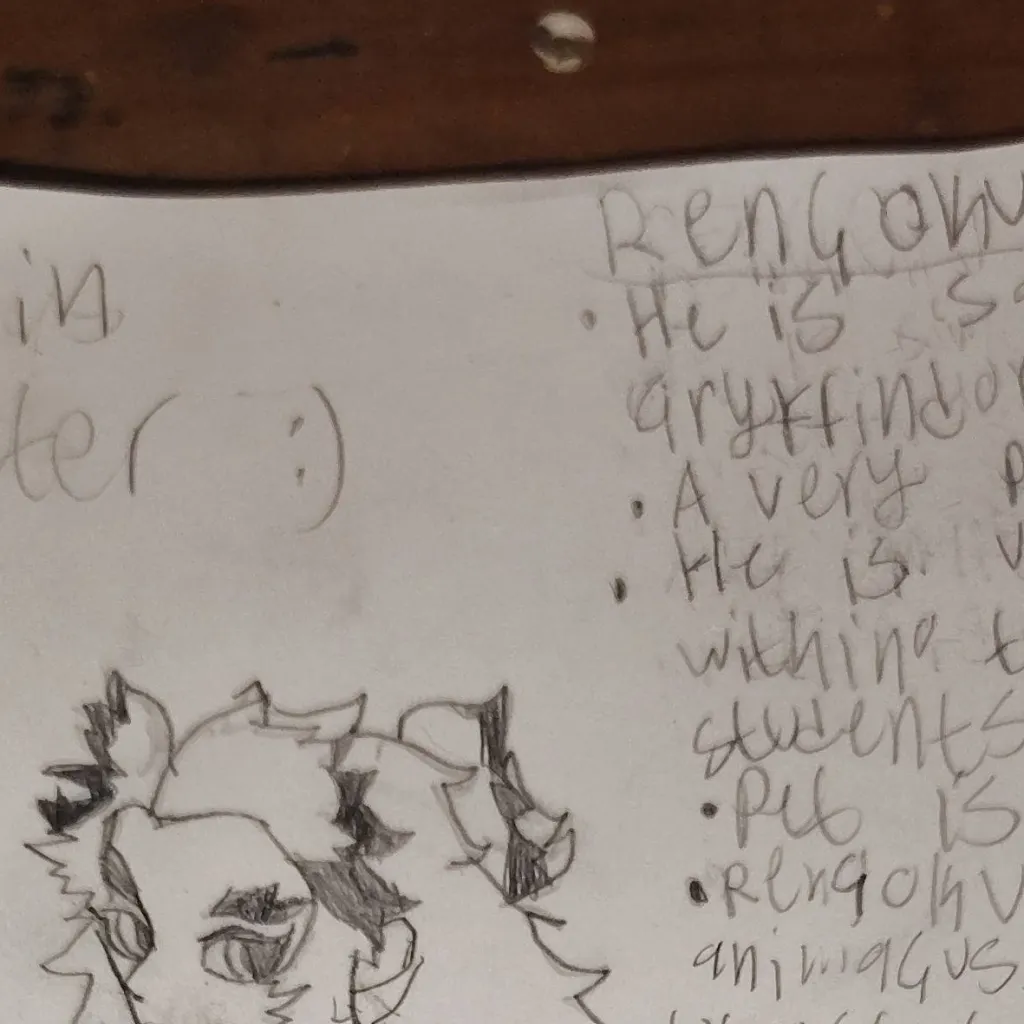 in
ter :)
RENGOKU
• He is
gryffindor
• A very
• He is
withing
students
• Pet is
• Rengoku
animagus